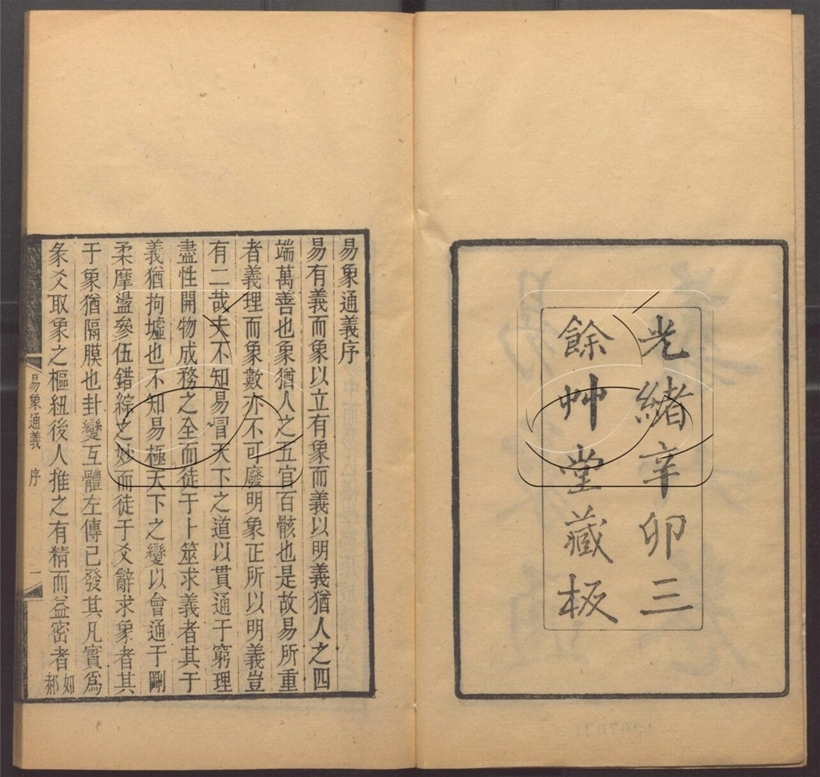 光緒辛卯三
餘艸堂藏板
易象通義序
易有義而象以立有象而義以明義猶人之四
端萬善也象猶人之五官百骸也是故易所重
者義理而象數亦不可廢明象正所以明義豈
有二哉夫不知易冒天下之道以貫通于窮理
盡性開物成務之全而徒于卜筮求義者其于
義猶拘墟也不知易極天下之變以會通于剛
柔摩盪參伍錯綜之妙而徒于爻辭求象者其
于象猶隔膜也卦變互體左傳已發其凡實爲
彖爻取象之樞紐後人推之有精而益密者如
郝
易象通義 序 一